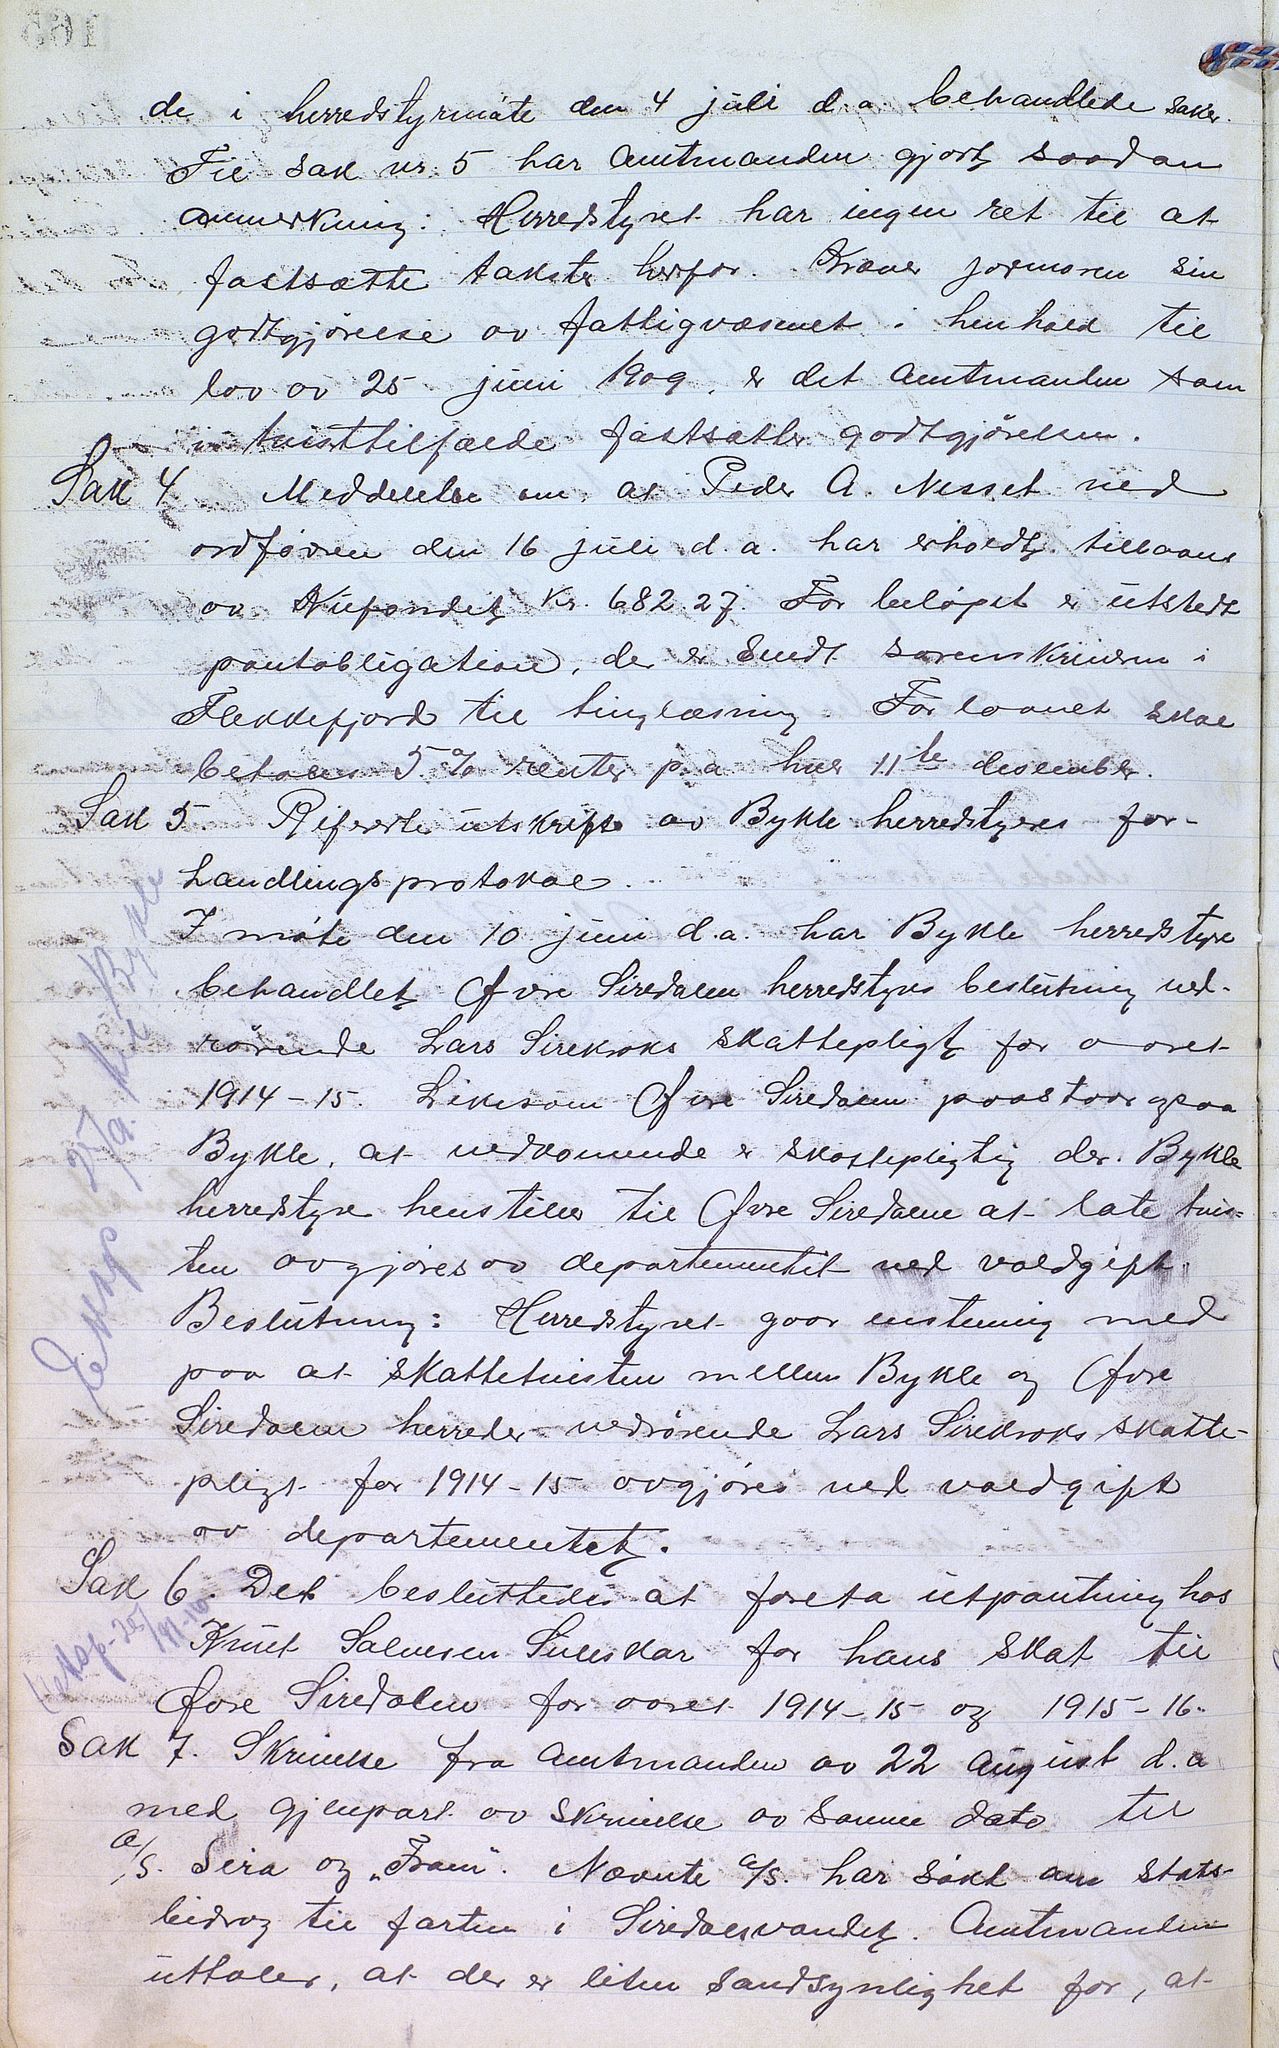 de i herredstyrmøte den 4 juli d.a. behandlede saker.
Til sak nr. 5 har amtmanden gjort saadan
anmerkning: Herredstyret har ingen ret til at
fastsætte takster herfor. Kræver jormoren sin
godtgjørelse av fattigvæsenet i henhold til
lov av 25 juni 1909, er det amtmanden som
i tvisttilfælde fastsætter godtgjørelsen.
Sak 4. Meddelelse om, at Peder A. Nesset ved
ordføren den 16 juli d.a. har erholdt tillaans
av Kr. 682.27. For beløpet er utstedt
pantobligation, der er sendt sorenskriveren i
Flekkefjord til tinglæsning. For laanet skal
betales 5 % renter p.a. hver 11te desember.
Sak 5. Referertes utskrift av Bykle herredstyres for-
handlingsprotokol.
I møte den 10 juni d.a. har Bykle herredstyre
behandlet Øvre Siredalen herredstyres beslutning ved-
rørende Lars Sirekroks skattepligt for aaret
1914-15. Likesom Øvre Siredalen paastaar ogsaa
Bykle, at vedkomende er skattepligtig der. Bykle
herredstyre henstiller til Øvre Siredalen at late tvis-
ten avgjøres av departementet ved voldgift.
Beslutning: Herredstyret gaar enstemig med
paa at skattetvisten mellem Bykle og Øvre
Siredalen herreder vedrørende Lars Sirekroks skatte-
pligt for 1914-15 avgjøres ved voldgift
av departementet.
Eksp 25/9. til Bykle
Sak 6. Det besluttedes at foreta utpantning hos
Knut Salvesen Suleskar for hans skat til
Øvre Siredalen for aaret 1914-15 og 1915-16.
Sak 7. Skrivelse fra amtmanden av 22 august d.a
med gjenpart av skrivelse av samme dato til
A/S. Sira og "Fram". Nævnte a/s. har søkt om stats-
bidrag til farten i Siredalsvandet. Amtmanden
uttaler, at der er liten sandsynlighet for, at